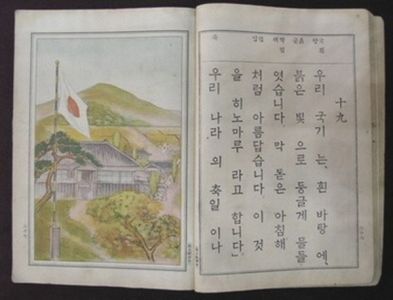 十九
우리 국기 는, 흰 바탕 에,
붉은 빛 으로 둥글게 물들
엿습니다. 막 돋은 아침해
처럼 아름답습니다. 이 것
을 히노마루 라고 합니다」
우리 나라 의 축일 이나